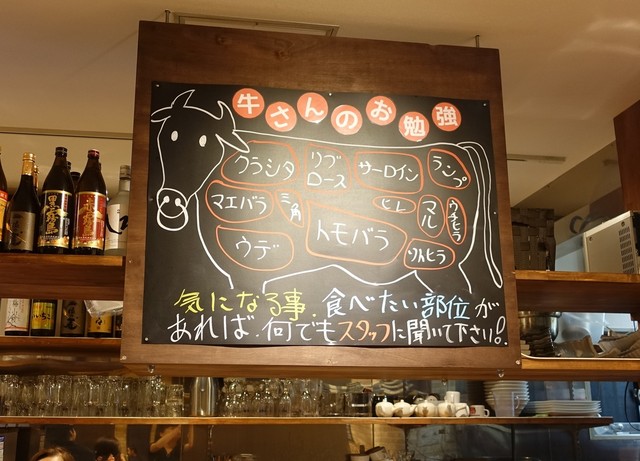 牛さんのお勉強
クラシタ
リブ
ロース
サーロイン
ランプ
マエバラ
三角
ヒレ
マル
ウチヒラ
ウデ
トモバラ
ソトヒラ
気になる事、食べたい部位が
あれば、何でもスタッフに聞いて下さい!